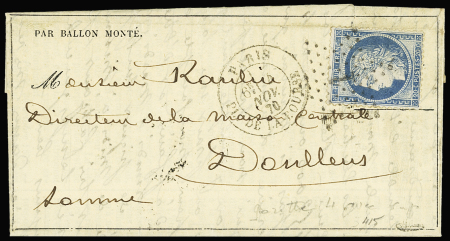 PAR BALLON MONTÉ.
PARIS
NOV.
70
Monsieur Raulin
Directeur de la maison Centrale
Doullens
Somme
415